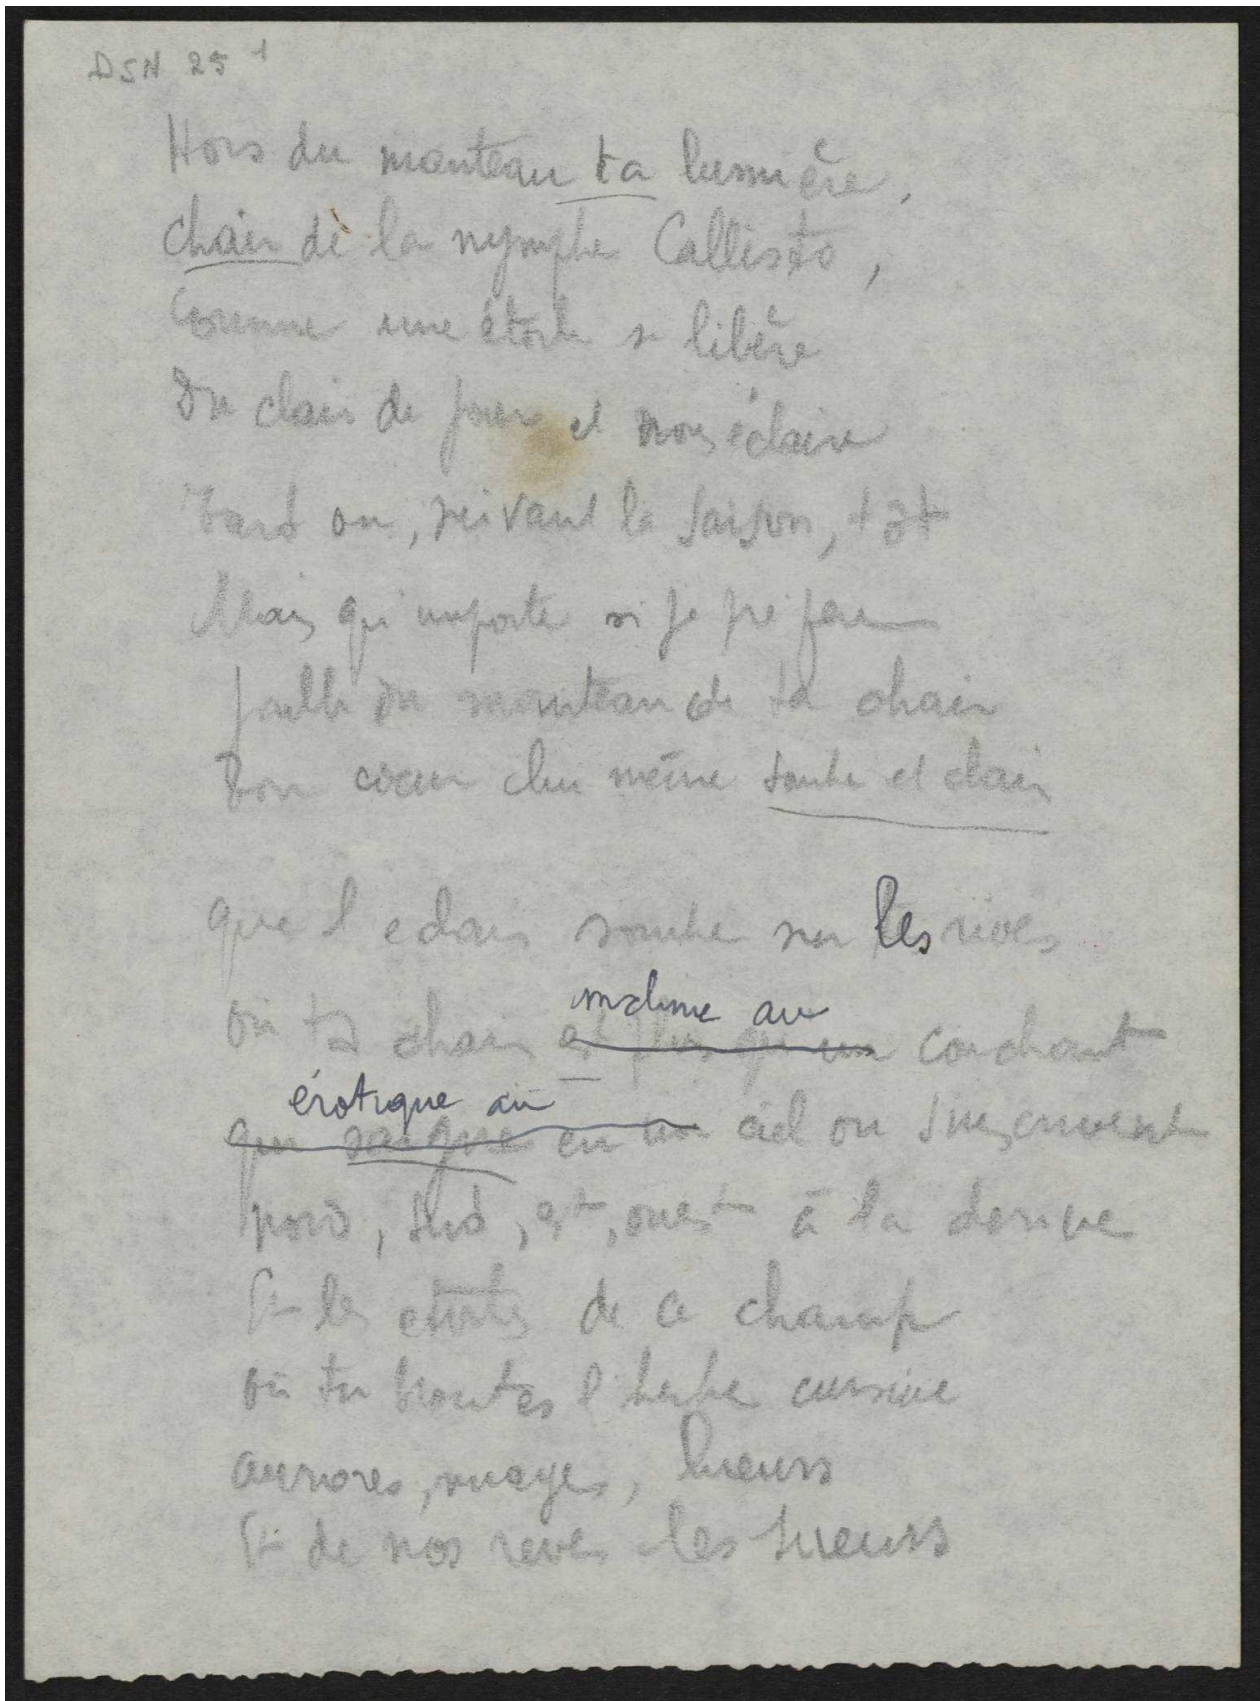 DSN 25 1
Hors du manteau ta lumière,
chair de la nymphe Callisto,
Comme une étoile se libère
Du clair de jour et nous éclaire
Tard ou, suivant la saison, tôt
Mais qu'importe si je préfère
Jaillir du manteau de ta chair
Ton cœur lui même sombre et clair
que l eclair sombre sur les rives
où ta chair est plus qu'un couchant
maline au
érotique au
qui saigne en un ciel ou s'incurvent
nord, sud, est, ouest à la derive
Et les etoiles de ce champ
où tu broutes l'herbe cursive
aurores, nuages, lueurs
Et de nos reves les sueurs